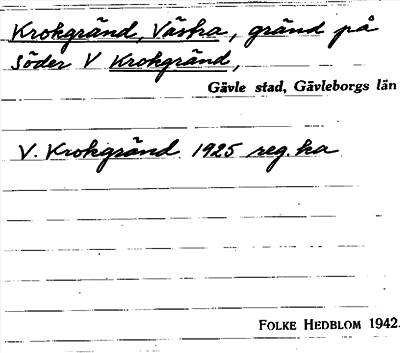 Krokgränd, Västra, gränd på
Söder V Krokgränd,
Gävle stad, Gävleborgs län
V. Krokgränd 1925 reg. ka
FOLKE HEDBLOM 1942.